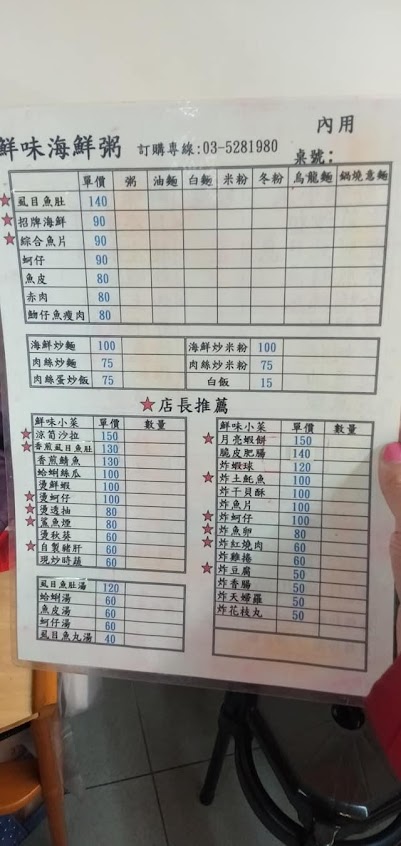 內用
鮮味海鮮粥 訂購專線:03-5281980 桌號:
單價 粥 油麵 白麵 米粉 冬粉 烏龍麵 鍋燒意麵
虱目魚肚 140
招牌海鮮 90
綜合魚片 90
蚵仔 90
魚皮 80
赤肉 80
魩仔魚瘦肉 80
海鮮炒麵 100 海鮮炒米粉 100
肉絲炒麵 75 肉絲炒米粉 75
肉絲蛋炒飯 75 白飯 15
★店長推薦
鮮味小菜 單價 數量
涼筍沙拉 150
香煎虱目魚肚 130
香煎鯖魚 130
蛤蜊絲瓜 100
燙鮮蝦 100
燙蚵仔 100
燙透抽 80
鯊魚煙 80
燙秋葵 60
自製豬肝 60
現炒時蔬 60
虱目魚肚湯 120
蛤蜊湯 60
魚皮湯 60
蚵仔湯 60
虱目魚丸湯 40
鮮味小菜 單價 數量
月亮蝦餅 150
脆皮肥腸 140
炸蝦球 120
炸土魠魚 100
炸干貝酥 100
炸魚片 100
炸蚵仔 100
炸魚卵 80
炸紅燒肉 60
炸雞捲 60
炸豆腐 50
炸香腸 50
炸天婦羅 50
炸花枝丸 50